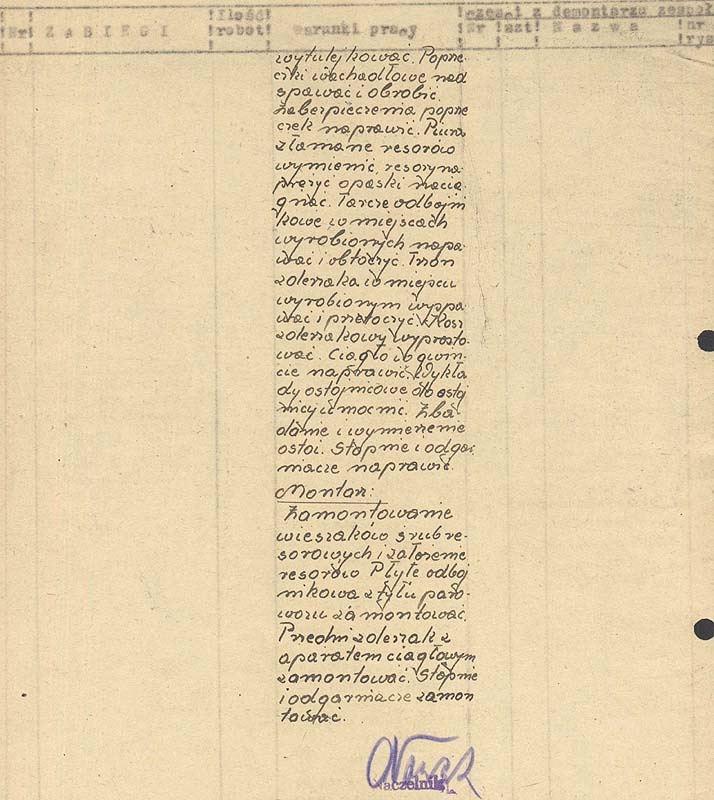 Nr! Z A B I E G I !Ilość! robot! warunki pracy !części z demontarzu zespoł
Nr !szt! N a z w a nr rys
wytulejkować. Poprze
czki wachadłowe nad
spawać i obrobić.
Zabezpieczenia poprze
czek naprawić. Pióra
złamane resorów
wymienić, resory na
prężyć opaski nacią
gnąć. Tarcze odbojni
kowe w miejscach
wyrobionych napa-
wać i obtoczyć. Trzon
zderzaka w miejscu
wyrobionym wyspa
wać i przetoczyć. Kosz
zderzakowy wyprosto
wać. Cięgło i gwin-
cie naprawić. Wykła
dy ostojnicowe do ostoj
nicy umocnić. Zba-
danie i wymierzenie
ostoi. Stopnie i odgar
niacze naprawić.
Montarz:
Zamontowanie
wieszaków śrub re-
sorowych i założenie
resorów Płytę odboj
nikową z tyłu paro-
wozu zamontować.
Przedni zderzak z
aparatem ciągłowym
zamontować. Stopnie
i odgarniacze zamon
tować.
Naczelnik